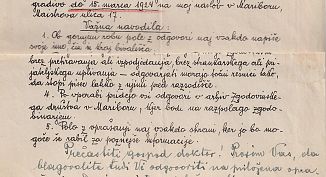 gradivo do 15. marca 1924 na moj naslov v Mariboru,
ulica 17.
Važna navodila:
1. Ob gornjem robu pole z odgovori naj vsakdo napiše
svoje ime, čin in kraj bivališča
brez pretiravanja ali izpodjedanja, brez strankarskega ali pa
vplivanja - odgovarjati morajo točno resnici tako,
da stopi pisec lahko z njimi pred razsodišče.
4. Po uporabi pridejo vsi odgovori v arhiv Zgodovinske-
ga društva v Mariboru, kjer bodo na razpolago zgodo-
vinarjem.
5. Polo z vprašanji naj vsakdo shrani, ker jo bo mo-
goče še rabil za poznejše informacije.
Prečastiti gospod doktor! Prosim Vas, da
blagovolite tudi Vi odgovoriti na priložena vpra-